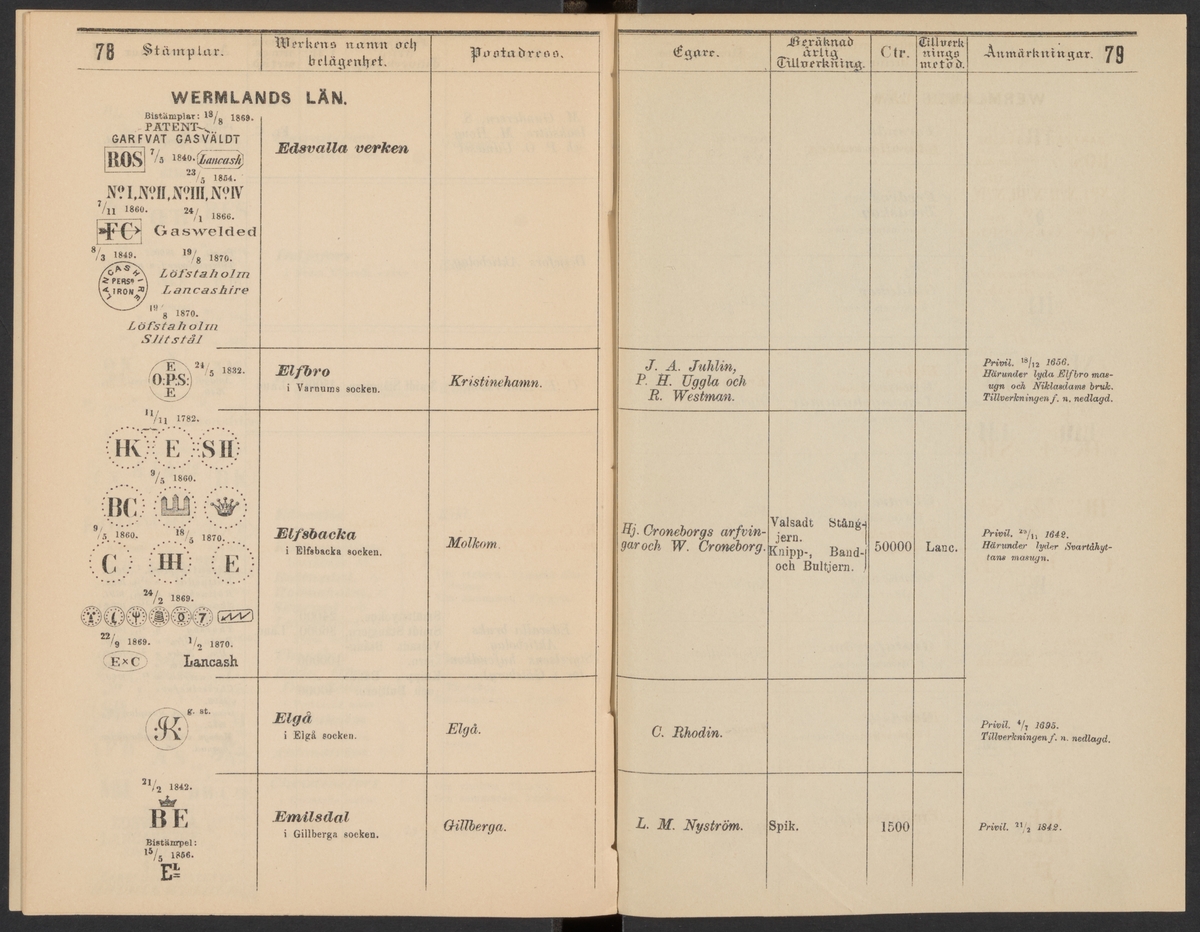 78 Stämplar.
Werkens namn och
belägenhet.
Postadress.
WERMLANDS LÄN.
Bistämplar: 18/8 1869.
PATENT
GARFVAT GASVÄLDT
ROS 7/5 1840. Lancash
23/5 1854.
No. I, No. II, No. III, No. IV
7/11 1860. 24/1 1866.
FC Gaswelded
8/3 1849. 19/8 1870.
LANCASHIRE PERSn IRON
Löfstaholm
Lancashire
19/8 1870.
Löfstaholm
Slitstål
Edsvalla verken
E
O:P.S:
E
24/5 1832.
Elfbro
i Varnums socken.
Kristinehamn.
11/11 1782.
HK E SH
9/5 1860.
BC
9/5 1860. 18/5 1870.
C HH E
24/2 1869.
7
22/9 1869. 1/2 1870.
E×C Lancash
Elfsbacka
i Elfsbacka socken.
Molkom.
K g. st.
Elgå
i Elgå socken.
Elgå.
21/2 1842.
BE
Bistämpel:
15/5 1856.
EL
Emilsdal
i Gillberga socken.
Gillberga.
Egare.
Beräknad
årlig
Tillverkning.
Ctr.
Tillverk
nings
metod.
Anmärkningar. 79
J. A. Juhlin,
P. H. Uggla och
R. Westman.
Privil. 18/12 1656.
Härunder lyda Elfbro mas-
ugn och Niklasdams bruk.
Tillverkningen f. n. nedlagd.
Hj. Croneborgs arfvin-
gar och W. Croneborg.
Valsadt Stång-
jern.
Knipp-, Band-
och Bultjern.
50000
Lanc.
Privil. 29/11 1642.
Härunder lyder Svartåhyt-
tans masugn.
C. Rhodin.
Privil. 4/7 1695.
Tillverkningen f. n. nedlagd.
L. M. Nyström.
Spik.
1500
Privil. 21/2 1842.